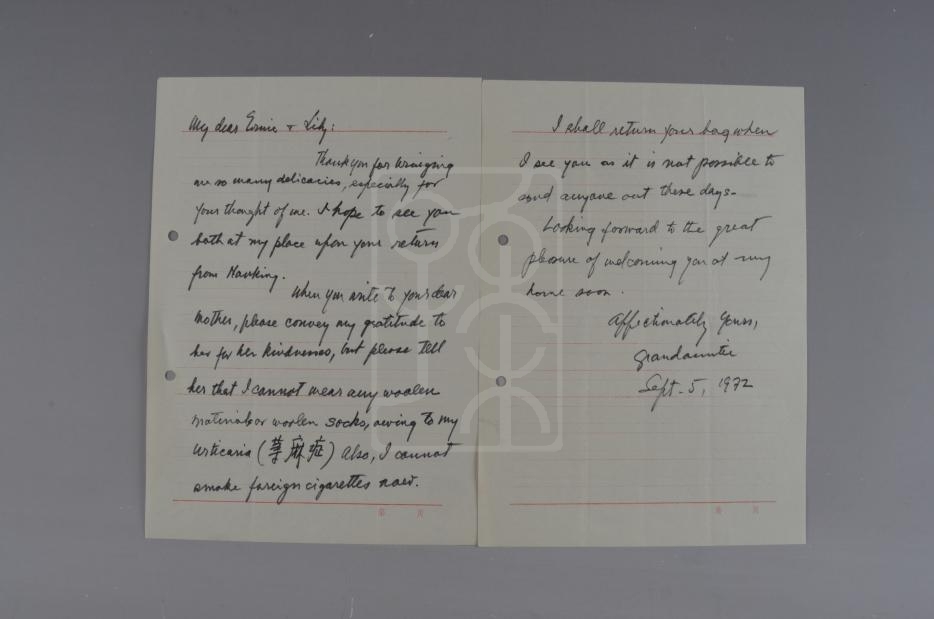 My dear Ernie + Lily:
Thank you for bringing
me so many delicacies, especially for
your thought of me. I hope to see you
both at my place upon your return
from Nanking.
When you write to your dear
mother, please convey my gratitude to
her for her kindness, but please tell
her that I cannot wear any woolen
material or woolen socks, owing to my
urticaria (荨麻症) Also, I cannot
smoke foreign cigarettes now.
第 页
I shall return your bag when
I see you as it is not possible to
send anyone out these days.
Looking forward to the great
pleasure of welcoming you at my
home soon.
Affectionately yours,
Grandauntie
Sept. 5, 1972
第 页